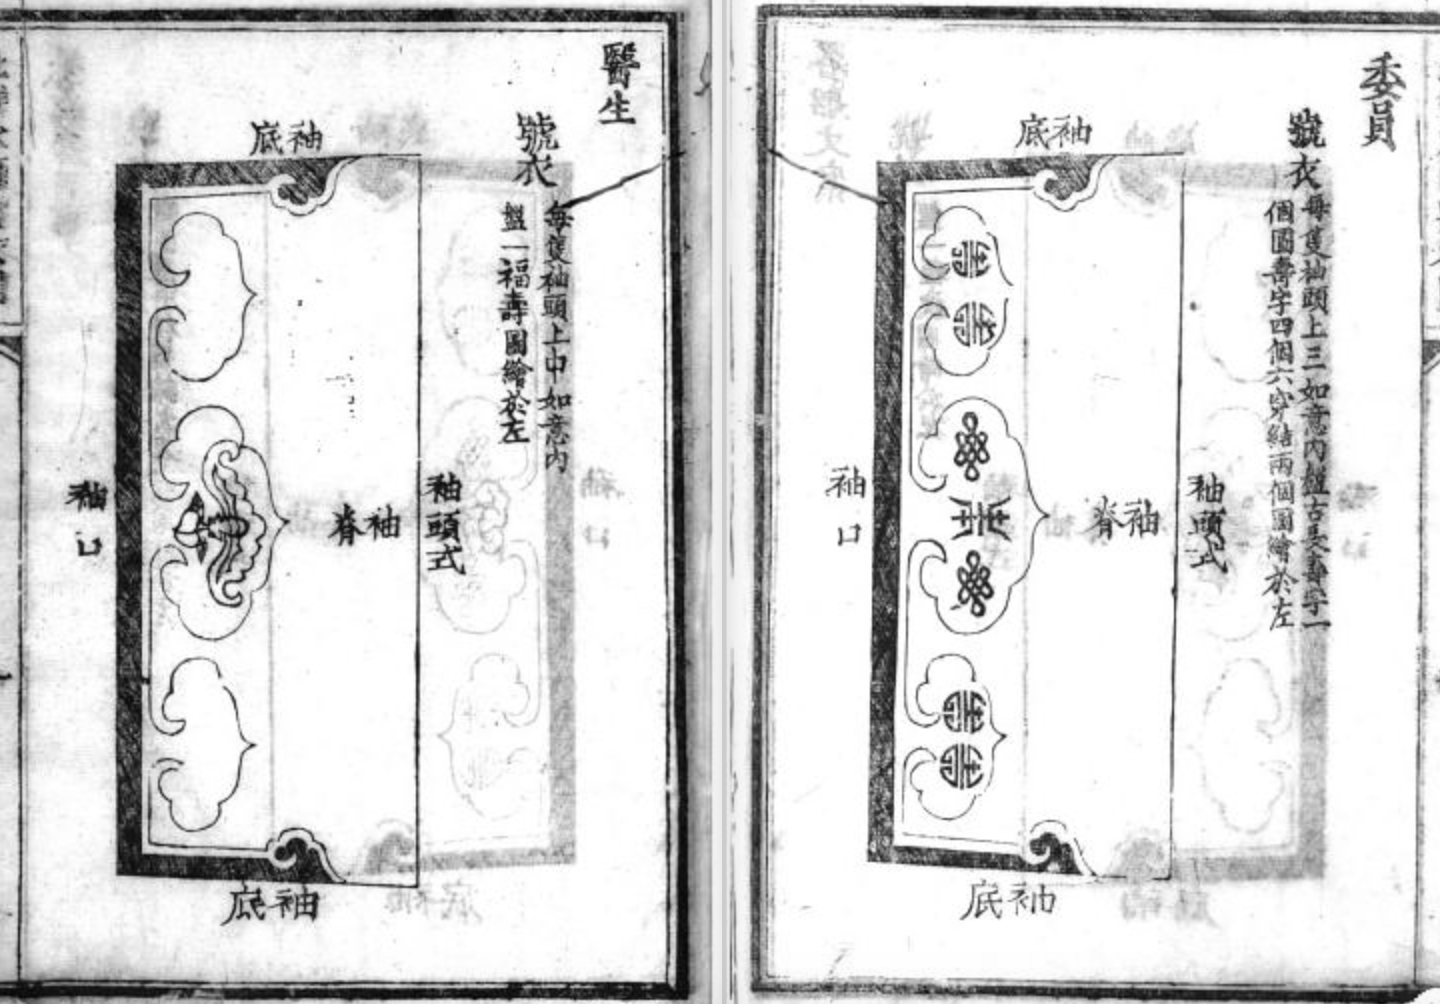 委員
號衣
每隻袖頭上三如意內盤古長壽字一
個圓壽字四個六穿結兩個圖繪於左
袖頭式
底袖
脊袖
袖口
底袖
醫生
號衣
每隻袖頭上中如意內
盤一福壽圖繪於左
袖頭式
底袖
脊袖
袖口
底袖